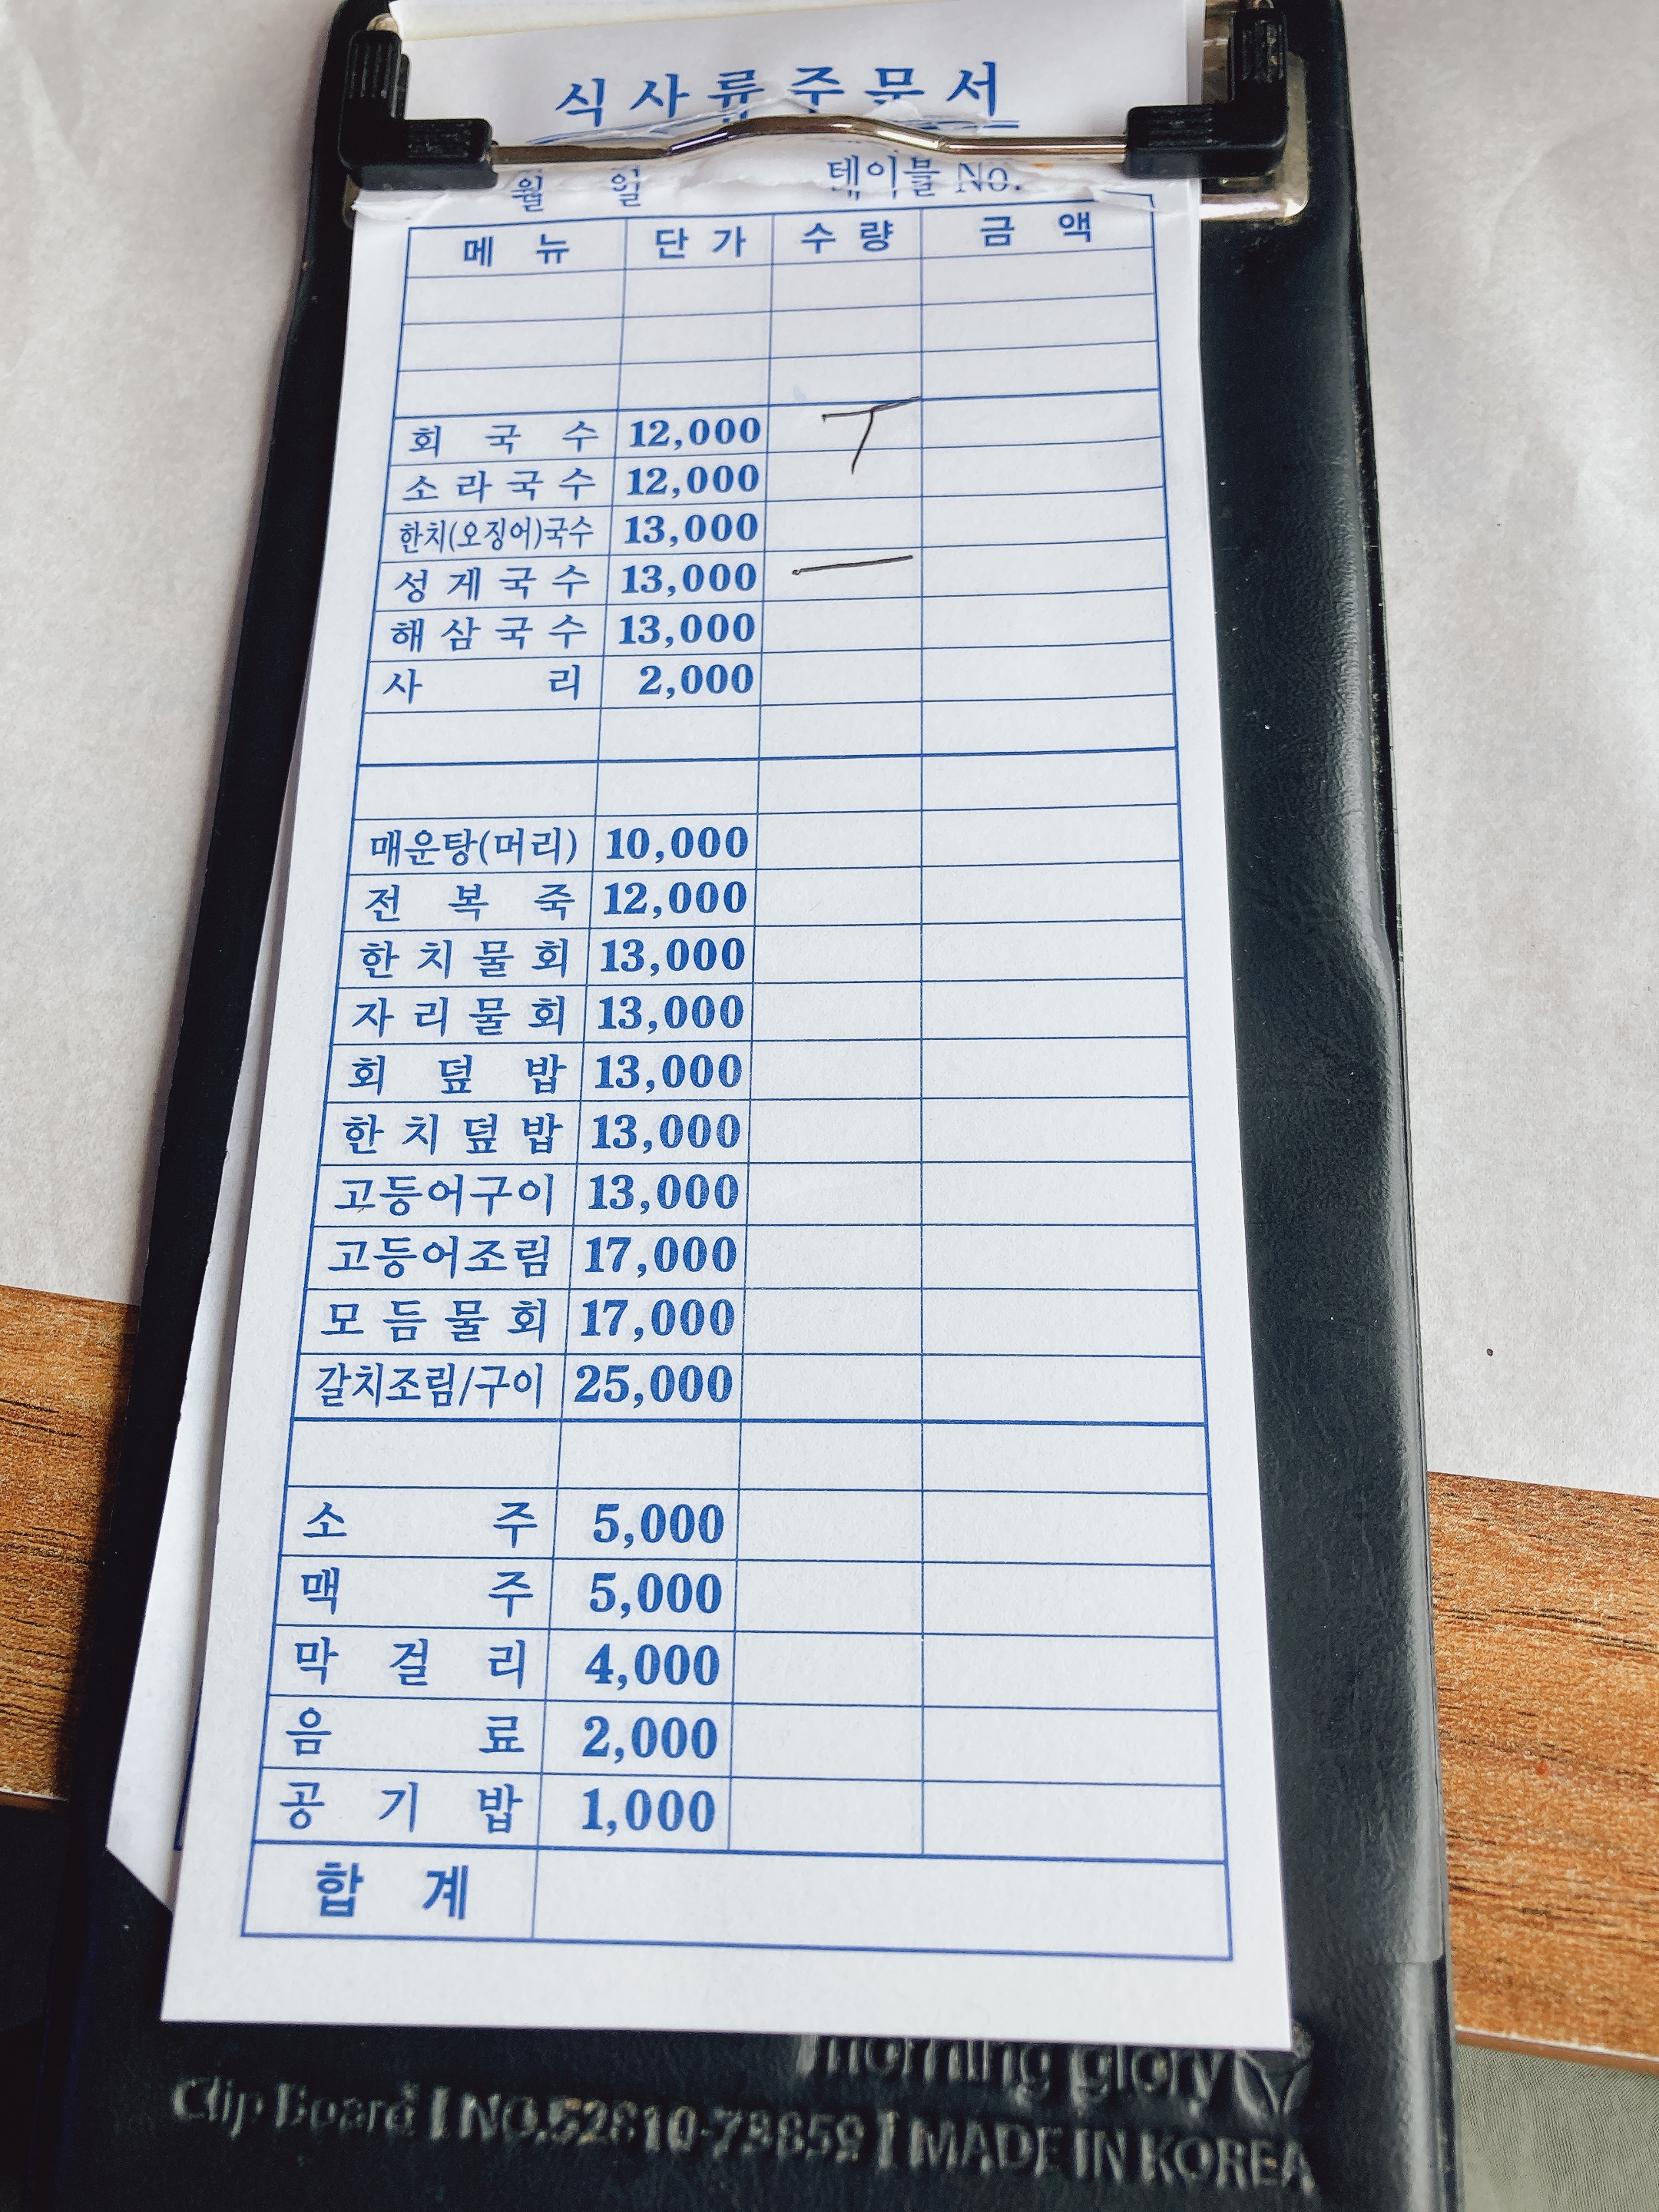 식사류주문서
월 일 테이블 No.
메 뉴 단 가 수 량 금 액
회 국 수 12,000 T
소 라 국 수 12,000
한치(오징어)국수 13,000
성 게 국 수 13,000 一
해 삼 국 수 13,000
사 리 2,000
매운탕(머리) 10,000
전 복 죽 12,000
한 치 물 회 13,000
자 리 물 회 13,000
회 덮 밥 13,000
한 치 덮 밥 13,000
고등어구이 13,000
고등어조림 17,000
모 듬 물 회 17,000
갈치조림/구이 25,000
소 주 5,000
맥 주 5,000
막 걸 리 4,000
음 료 2,000
공 기 밥 1,000
합 계
morning glory
Clip Board | NO.52810-79859 | MADE IN KOREA